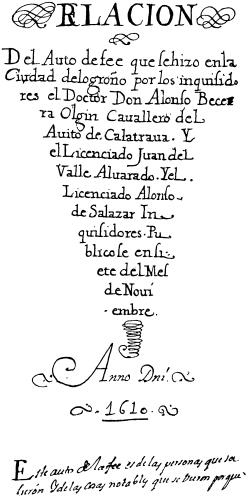 RELACION
Del Auto de fee que se hizo en la
Ciudad de logroño por los inquisido
res el Doctor Don Alonso Bece
ra Olgin Cauallero del
Auito de Calatraua. Y
el Licenciado Juan del
Valle Aluarado. Y eL
Licenciado Alonso
de Salazar In
quisidores. Pu
blicose en si
ete del Mes
de Noui
embre.
Anno Dni.
1610.
Este auto de la fee es de las personas que sa
lieron Y de las cosas notables que se dieron porque